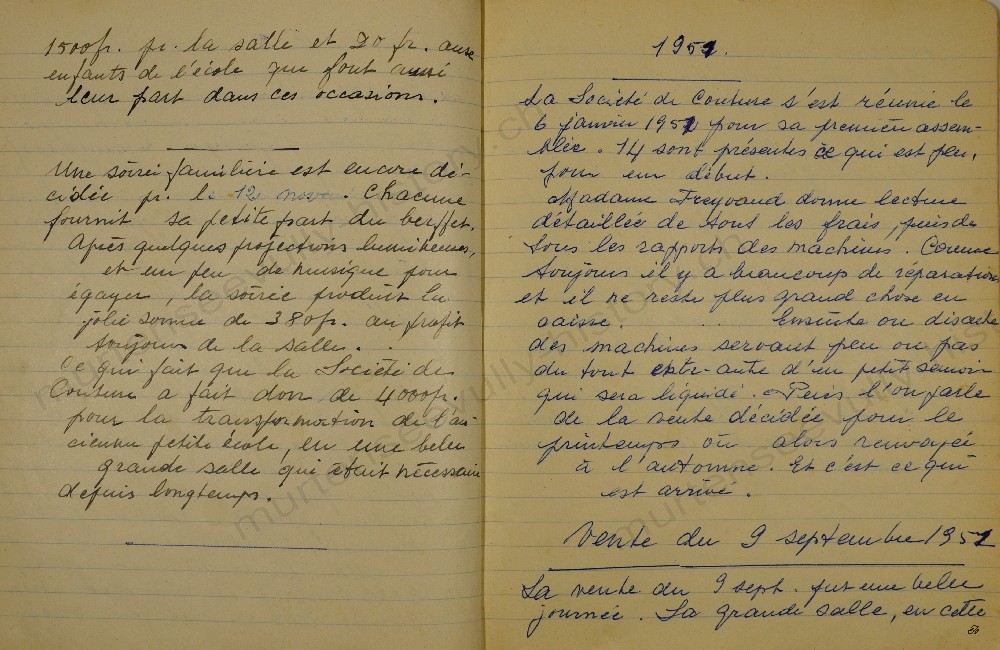 1500fr. pr. la salle et 20 fr. aux
enfants de l'école qui font aussi
leur part dans ces occasions.
Une soirée familière est encore dé-
cidée pr. le 12 nov. Chacune
fournit sa petite part du buffet.
Après quelques projections lumineuses,
et un peu de musique pour
égayer, la soirée produit la
jolie somme de 380fr. au profit
toujours de la salle.
Ce qui fait que la Société de
Couture a fait don de 4000fr.
pour la transformation de l'an-
cienne petite école, en une belle
grande salle qui était nécessaire
depuis longtemps.
1951.
La Société de Couture s'est réunie le
6 janvier 1951 pour sa première assem-
blée. 14 sont présentes ce qui est peu,
pour un début.
Madame Freyvaud donne lecture
détaillée de tout les frais, puis de
tous les rapports des machines. Comme
toujours il y a beaucoup de réparations
et il ne reste plus grand chose en
caisse. Ensuite on discute
des machines servant peu ou pas
du tout entr-autre d'un petit
qui sera liquidé. Puis l'on parle
de la vente décidée pour le
printemps ou alors renvoyée
à l'automne. Et c'est ce qui
est arrivé.
Vente du 9 septembre 1951
La vente du 9 sept. fut une belle
journée. La grande salle, en cette
murtenseevullyshistory.ch
murtenseevullyshistory.ch